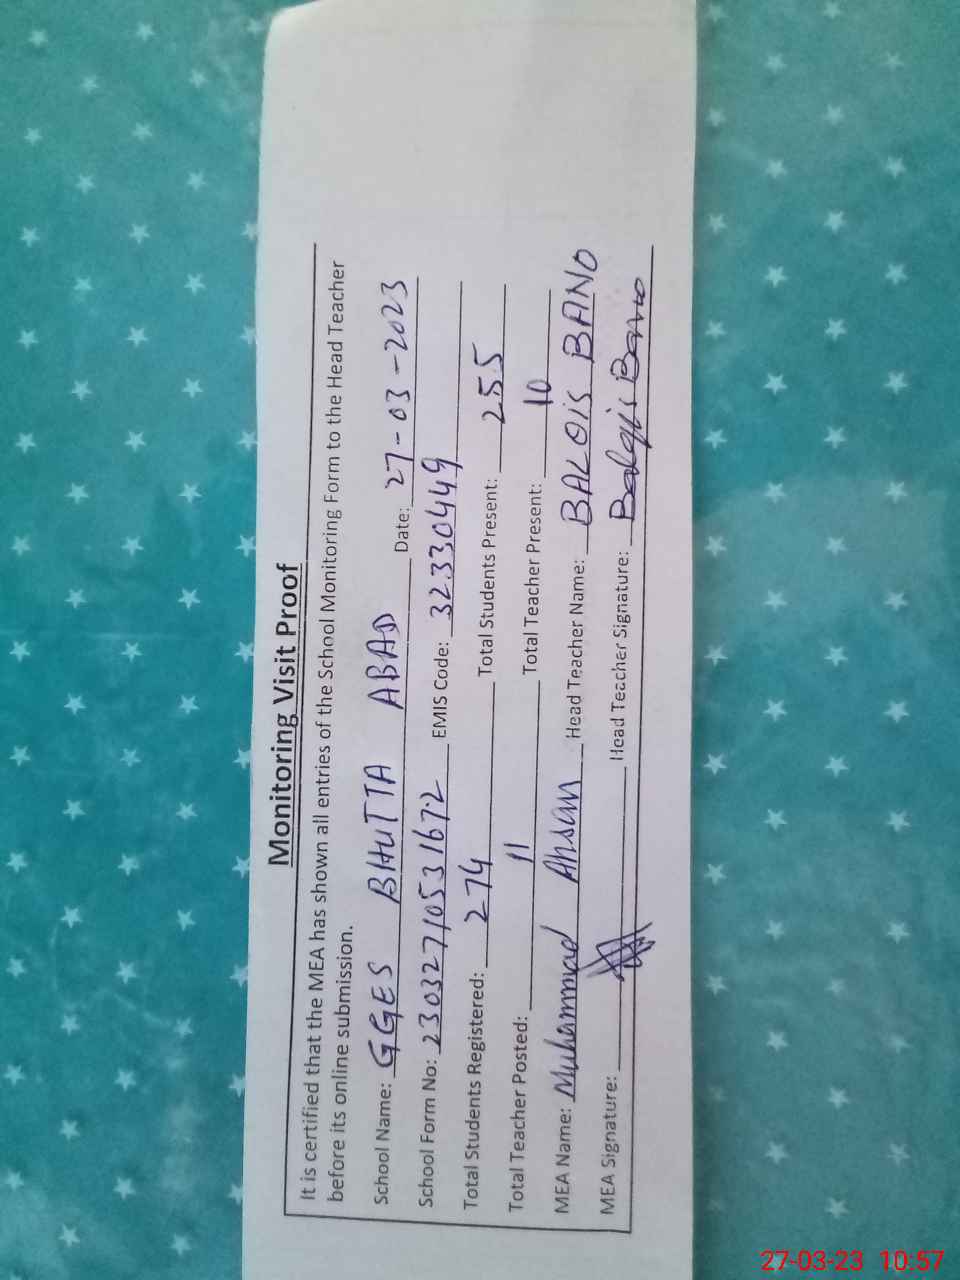 Monitoring Visit Proof
It is certified that the MEA has shown all entries of the School Monitoring Form to the Head Teacher
before its online submission.
School Name: GGES BHUTTA ABAD Date: 27-03-2023
School Form No: 23032710531672 EMIS Code: 32330449
Total Students Registered: 274 Total Students Present: 255
Total Teacher Posted: 11 Total Teacher Present: 10
MEA Name: Muhammad Ahsan Head Teacher Name: BALQIS BANO
MEA Signature: Head Teacher Signature: Balqis Bano
27-03-23 10:57